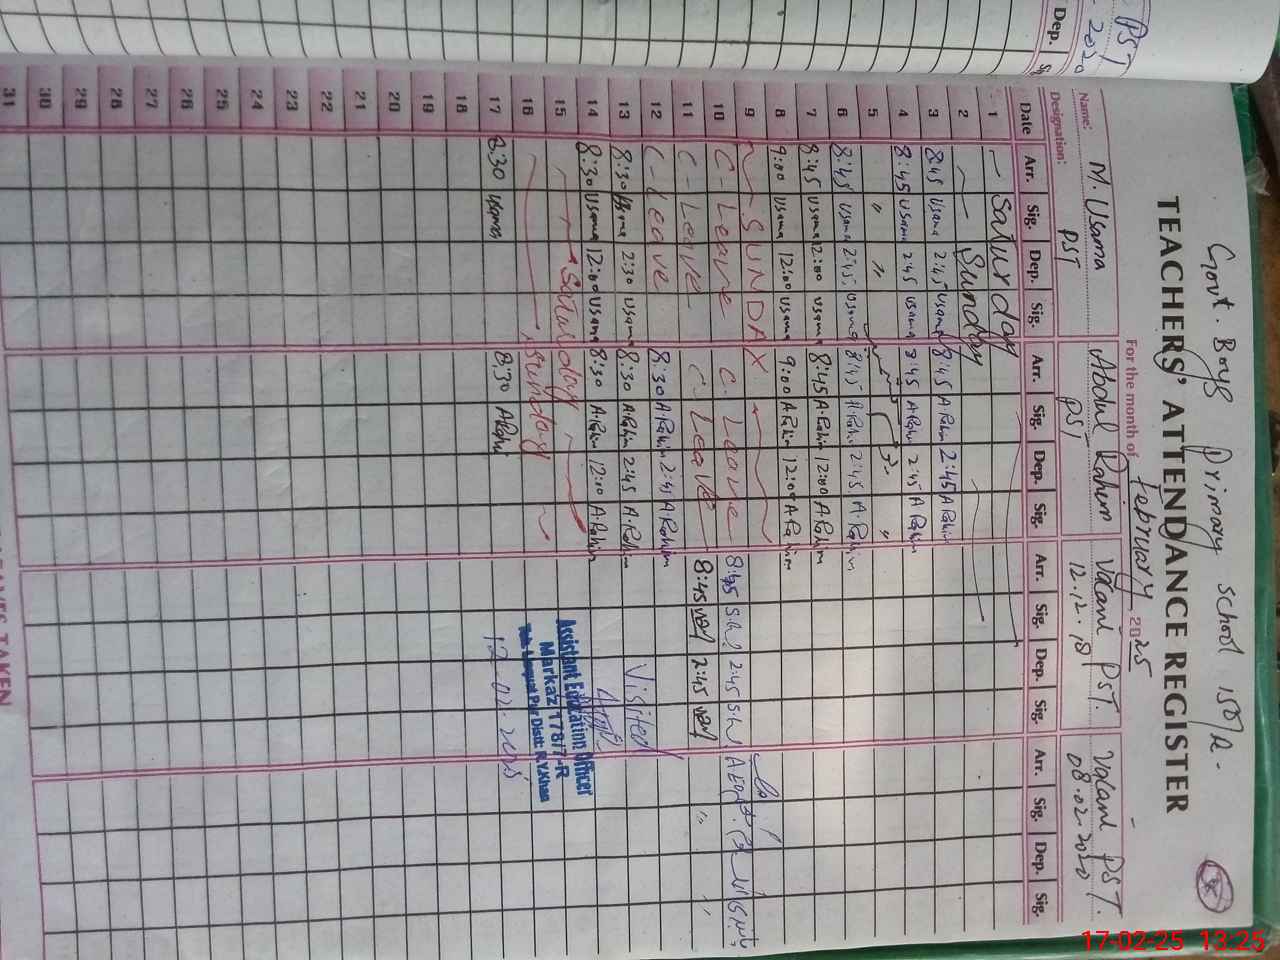 PST
- 2020
Dep.
Govt. Boys Primary school 150/A-
TEACHERS' ATTENDANCE REGISTER
For the month of February 2025
Name: M. Usama Abdul Rahim Vacant PST. Vacant PST.
Designation: PST PST 12.12.18 08.02.2020
Date Arr. Sig. Dep. Sig. Arr. Sig. Dep. Sig. Arr. Sig. Dep. Sig. Arr. Sig. Dep. Sig.
1 Saturday
2 Sunday
3 8:45 Usama 2:45 Usama 8:45 A.Rahim 2:45 A Rahim
4 8:45 Usama 2:45 Usama 8:45 A.Rahim 2:45 A Rahim
5 " " "
6 8:45 Usama 2:45 Usama 8:45 A.Rahim 2:45 A.Rahim
7 8:45 Usama 12:00 Usama 8:45 A.Rahim 12:00 A.Rahim
8 9:00 Usama 12:00 Usama 9:00 A.Rahim 12:00 A.Rahim
9 SUNDAY
10 C-Leave C. Leave 8:45 2:45
11 C-Leave C. Leave 8:45 2:45 " "
12 C-Leave 8:30 A.Rahim 2:45 A.Rahim
13 8:30 Usama 2:30 Usama 8:30 A.Rahim 2:45 A.Rahim Visited
14 8:30 Usama 12:00 Usama 8:30 A.Rahim 12:00 A.Rahim
15 Saturday Assistant Education Officer
Markaz 178/7-R
16 Sunday Pur Distt: R.Y.Khan
17 8.30 Usama 8:30 A.Rahim 12.02.2025
18
19
20
21
22
23
24
25
26
27
28
29
30
31
LEAVES TAKEN
17-02-25 13:25